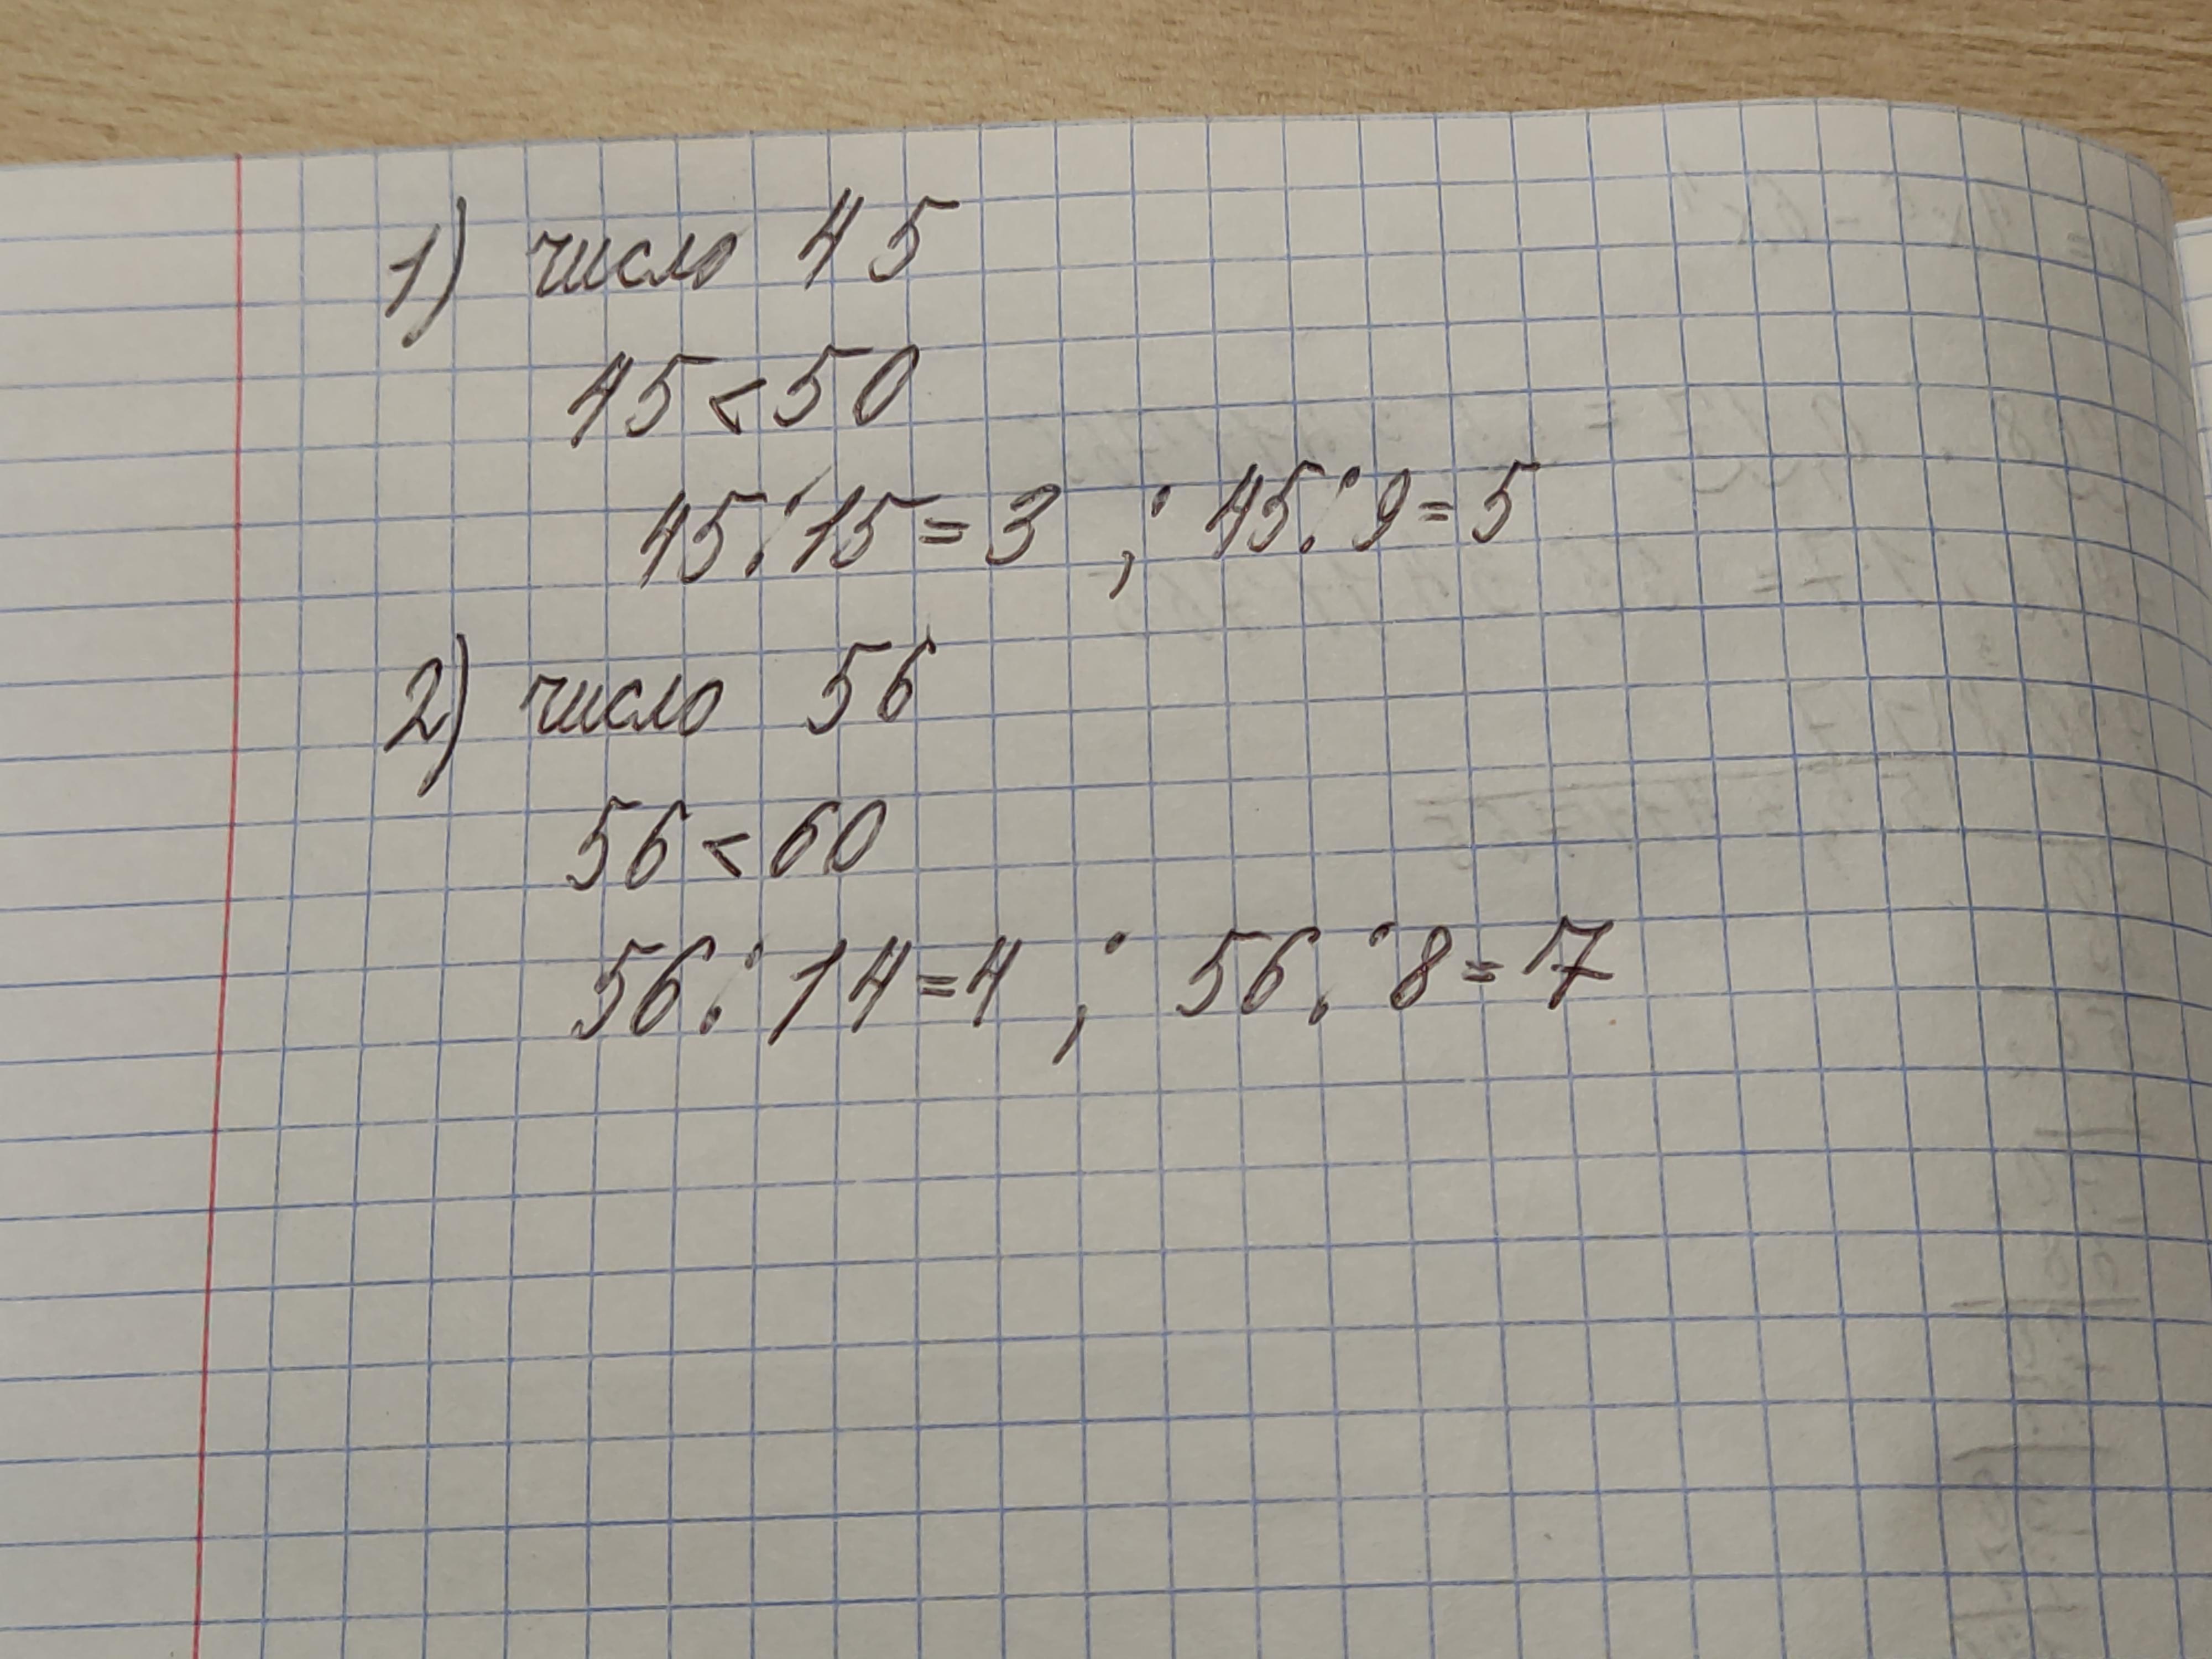 1) число 45
45<50
45:15=3 ; 45:9=5
2) число 56
56<60
56:14=4 ; 56:8=7